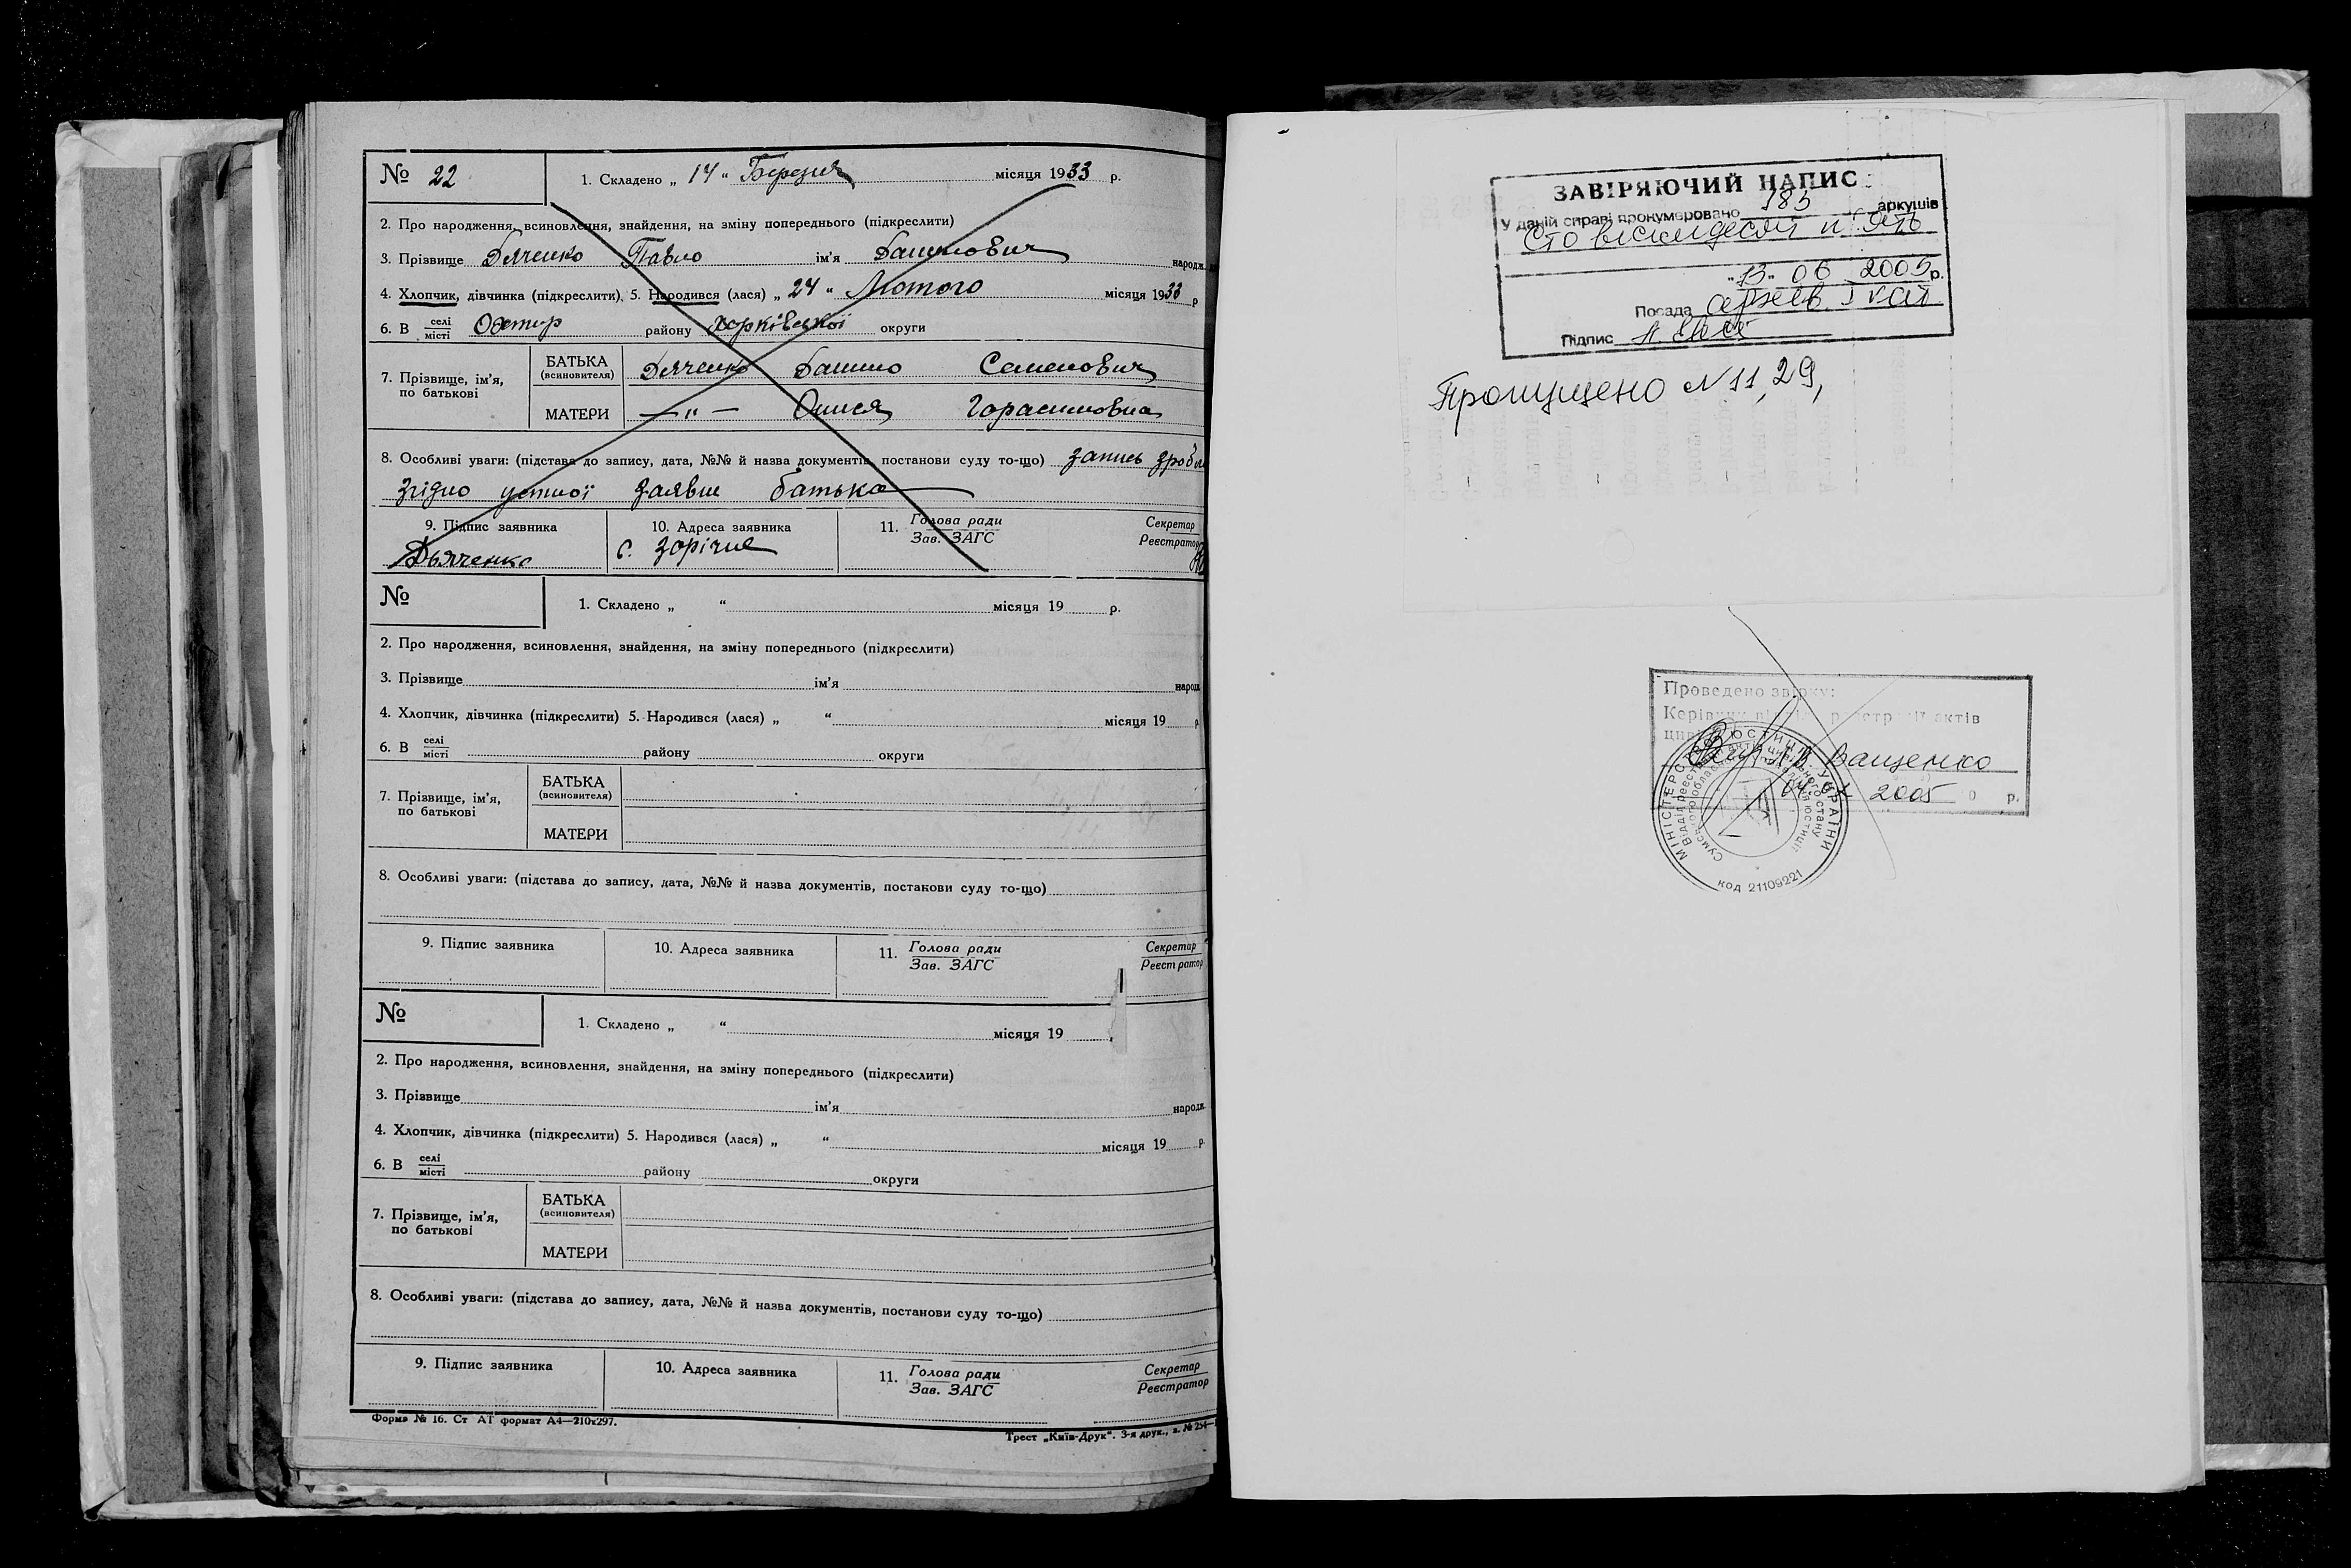 № 22
1. Складено „ 14 “ Березня місяця 1933 р.
2. Про народження, всиновлення, знайдення, на зміну попереднього (підкреслити)
3. Прізвище Дяченко Павло ім'я народж.
4. Хлопчик, дівчинка (підкреслити). 5. Народився (лася) „ 24 “ Лютого місяця 1933 р
6. В селі місті Охтир району Харківської округи
7. Прізвище, ім'я, по батькові
БАТЬКА (всиновителя) Дяченко Семенович
МАТЕРИ — „ — Горасимовна
8. Особливі уваги: (підстава до запису, дата, №№ й назва документів, постанови суду то-що) запись зробл
згідно устної заявы батька
9. Підпис заявника 10. Адреса заявника 11. Голова ради Зав. ЗАГС Секретар Реєстратор
Дьяченко с. Зарічне
№
1. Складено „ “ місяця 19 р.
2. Про народження, всиновлення, знайдення, на зміну попереднього (підкреслити)
3. Прізвище ім'я народж
4. Хлопчик, дівчинка (підкреслити) 5. Народився (лася) „ “ місяця 19 р
6. В селі місті району округи
7. Прізвище, ім'я, по батькові
БАТЬКА (всиновителя)
МАТЕРИ
8. Особливі уваги: (підстава до запису, дата, №№ й назва документів, постанови суду то-що)
9. Підпис заявника 10. Адреса заявника 11. Голова ради Зав. ЗАГС Секретар Реєстратор
№
1. Складено „ “ місяця 19
2. Про народження, всиновлення, знайдення, на зміну попереднього (підкреслити)
3. Прізвище ім'я народж.
4. Хлопчик, дівчинка (підкреслити) 5. Народився (лася) „ “ місяця 19 р.
6. В селі місті району округи
7. Прізвище, ім'я, по батькові
БАТЬКА (всиновителя)
МАТЕРИ
8. Особливі уваги: (підстава до запису, дата, №№ й назва документів, постанови суду то-що)
9. Підпис заявника 10. Адреса заявника 11. Голова ради Зав. ЗАГС Секретар Реєстратор
Форма № 16. Ст АТ формат А4—210х297.
Трест „Київ-Друк“. 3-я друк., з. № 254—
ЗАВІРЯЮЧИЙ НАПИС
У даній справі пронумеровано 185 аркушів
Сто вісімдесят п'ять
„13“ 06 2005 р.
Посада архів. І кат
Підпис
Пропущено N 11, 29,
Проведено звірку:
Керівник відділу реєстрації актів
Ващенко
2005 р.
МІНІСТЕРСТВО ЮСТИЦІЇ УКРАЇНИ
Відділ реєстрації актів цивільного стану
Сумського обласного управління юстиції
код 21109221